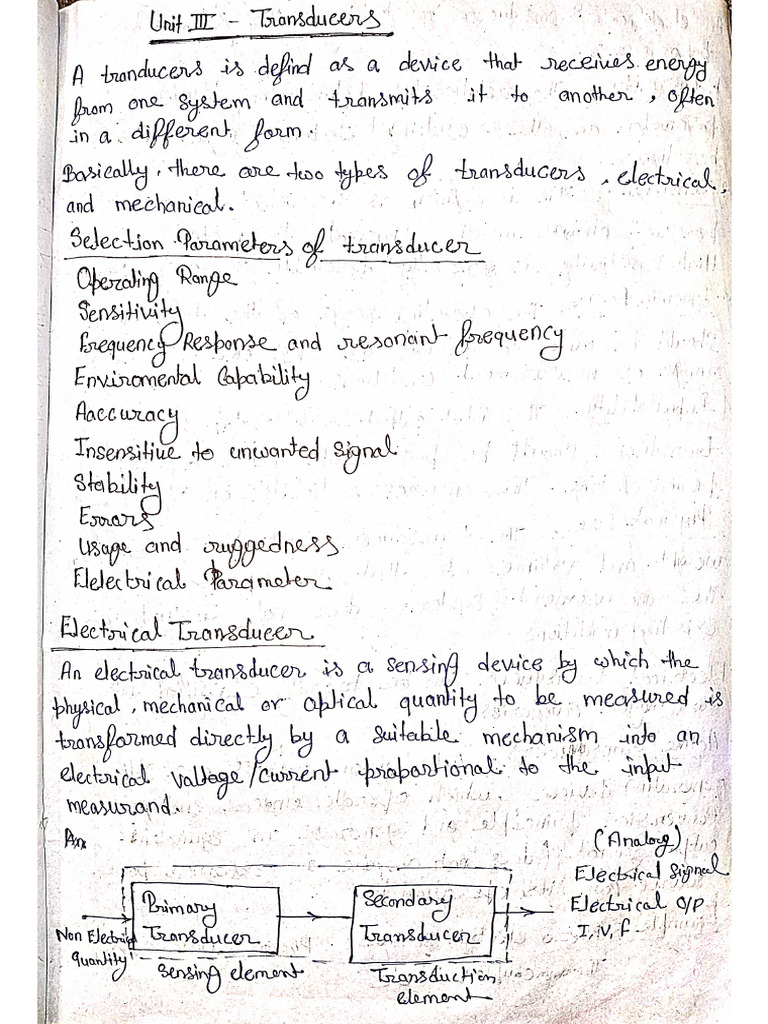 Unit III - Transducers
A tranducers is defind as a device that receives energy
from one system and transmits it to another, often
in a different form.
Basically, there are two types of transducers, electrical,
and mechanical.
Selection Parameters of transducer
Operating Range
Sensitivity
Frequency Response and resonant frequency
Enviromental Capability
Aaccuracy
Insensitive to unwanted signal
Stability
Errors
Usage and ruggedness
Elelectrical Parameter
Electrical Transducer
An electrical transducer is a sensing device by which the
physical, mechanical or optical quantity to be measured is
transformed directly by a suitable mechanism into an
electrical valtage/current propartional to the input
measurand.
(Analog)
Electrical Signal
Electrical O/P
I, V, f
Primary
Transducer
Secondary
Transducer
Non Electrical
quantity
Sensing element
Transduction
element